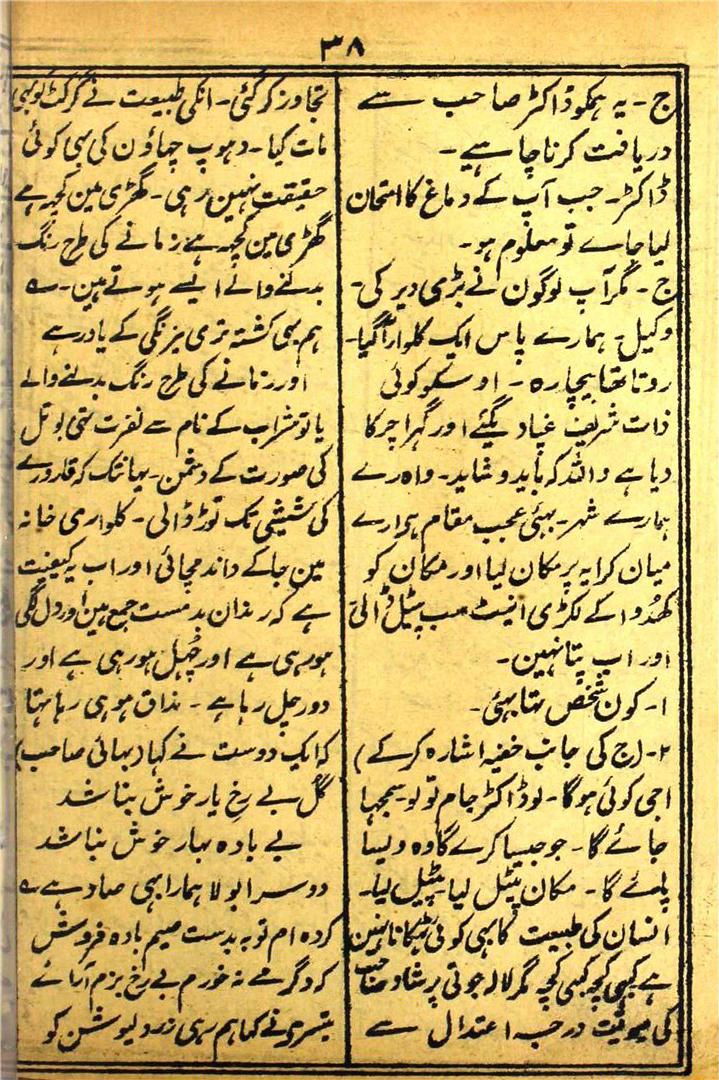 ۳۸
ج - یہ ہمکو ڈاکٹر صاحب سے
دریافت کرنا چاہیے -
ڈاکٹر - جب آپ کے دماغ کا امتحان
لیا جاے تو معلوم ہو -
ج - مگر آپ لوگون نے بڑی دیر کی -
وکیل - ہمارے پاس ایک کلوار آگیا -
روتا تھا بیچارہ - اوسکو کوئی
ذات شریف غپا دیگئے اور گہرا چرکا
دیا ہے واللہ کہ باید و شاید - واہ رے
ہمارے شہر - بہئی عجب مقام ہی ارے
میان کرایہ پر مکان لیا اور مکان کو
کھدوا کے لکڑی اینٹ سب پٹیل ڈالی
اور اب پتا نہین -
۱ - کون شخص تہا بہئی -
۲ - (ج کی جانب خفیہ اشارہ کرکے)
اجی کوئی ہوگا - لو ڈاکٹر جام تو لو سمجہا
جائے گا - جو جیسا کرے گا وہ ویسا
پائے گا - مکان پٹیل لیا پٹیل لیا -
انسان کی طبیعت کا بہی کوئی ٹھکانا نہین
ہے کبہی کچہ کبہی کچہ مگر لالہ جوتی پرشاد صاحب
کی درجہ اعتدال سے
تجاوز کر گئی - انکی طبیعت نے گرگٹ کو بہی
مات کیا - دہوپ چہاؤن کی بہی کوئی
حقیقت نہین رہی - گھڑی مین کچہ ہے
گھڑی مین کچہ ہے زمانے کی طرح رنگ
بدلنے والے ایسے ہوتے ہین - ؎
ہم بہی کشتہ تری نیرنگی کے یاد رہے
اور زمانے کی طرح رنگ بدلنے والے
یا تو شراب کے نام سے نفرت تہی بوتل
کی صورت کے دشمن - یہانتک کہ قارورے
کی شیشی تک توڑ ڈالی - کلواری خانہ
مین جاکے داند مچائی اور اب یہ کیفیت
ہے کہ رندان بدمست جمع ہین اور دل لگی
ہو رہی ہے اور چُہل ہو رہی ہے اور
دور چل رہا ہے - مذاق ہو ہی رہا تہا
کہ ایک دوست نے کہا (بہائی صاحب)
گل بے رخ یار خوش نباشد
بے بادہ بہار خوش نباشد
دوسرا بولا ہمارا بہی صاد ہے ؎
کردہ ام توبہ بدست صنم بادہ فروش
کہ دگر مے نہ خورم بے رخ بزم آرائے
تیسرے نے کہا ہم بہی رزولیوشن کو